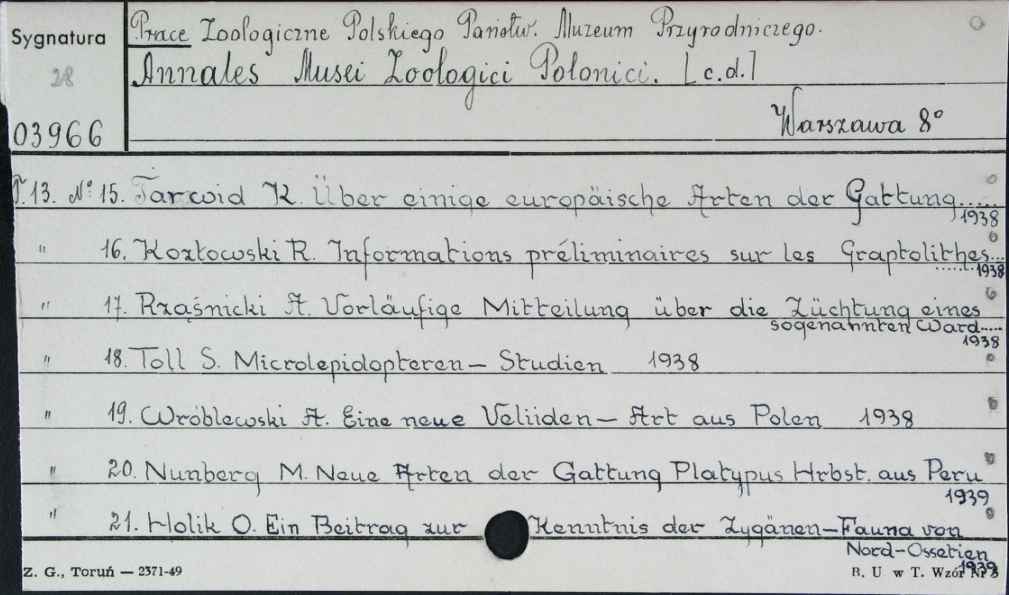 Sygnatura
28
03966
Prace Zoologiczne Polskiego Państw. Muzeum Przyrodniczego.
Annales Musei Zoologici Polonici. [c.d.]
Warszawa 8°
T.13. № 15. Tarwid K. Über einige europäische Arten der Gattung.....
1938
" 16. Kozłowski R. Informations préliminaires sur les Graptolithes...
......1938
" 17. Rząśnicki A. Vorläufige Mitteilung über die Züchtung eines
sogenannten Ward.....
1938
" 18. Toll S. Microlepidopteren – Studien 1938
" 19. Wróblewski A. Eine neue Veliiden – Art aus Polen 1938
" 20. Nunberg M. Neue Arten der Gattung Platypus Hrbst. aus Peru
1939
" 21. Holik O. Ein Beitrag zur Kenntnis der Zygänen–Fauna von
Nord-Ossetien
1939
Z. G., Toruń — 2371-49
B. U w T. Wzór Nr 3